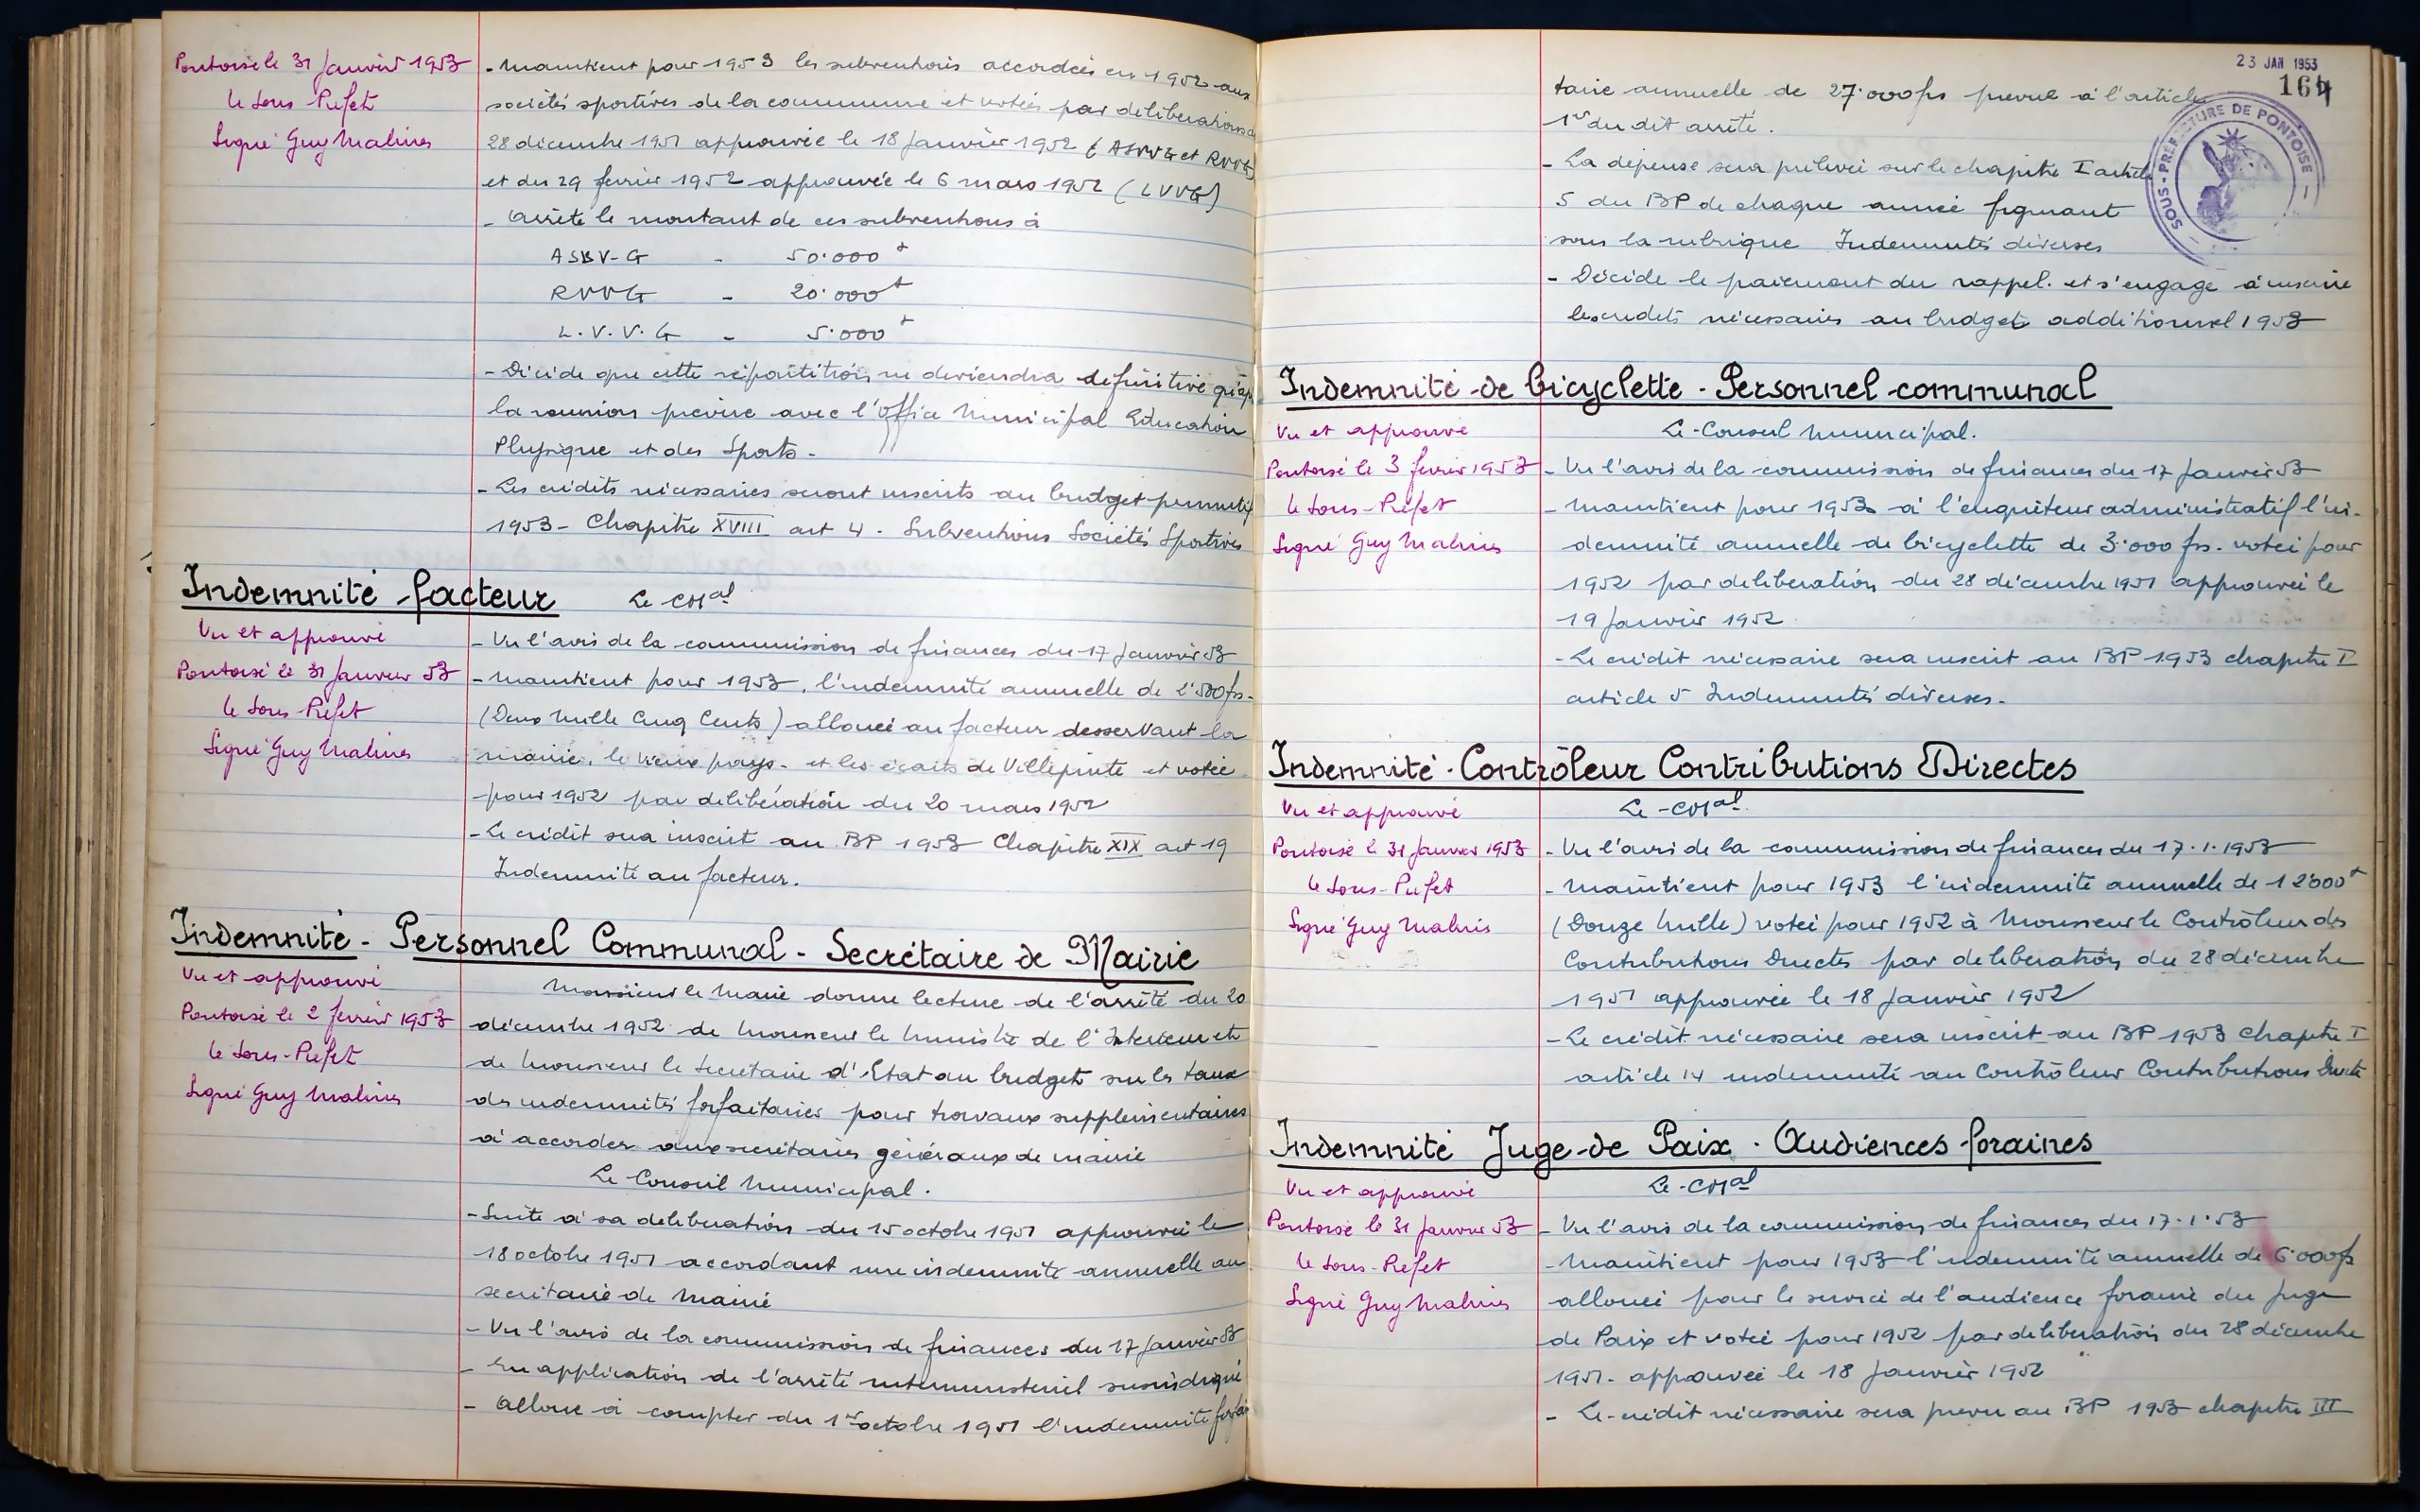 Pontoise le 31 Janvier 1953
le Sous-Préfet
Signé Guy Malines
- Maintient pour 1953 les subventions accordées en 1952 aux
sociétés sportives de la commune et votées par délibérations
28 décembre 1951 approuvée le 18 Janvier 1952 (ASVVG et RVVG)
et du 29 février 1952 approuvée le 6 mars 1952 (LVVG)
- Arrête le montant de ces subventions à
ASVV-G - 50.000 f
RVVG - 20.000 f
L.V.V.G - 5.000 f
- Décide que cette répartition ne deviendra définitive qu'ap
la réunion prévue avec l'Office Municipal Education
Physique et des Sports -
- Les crédits nécessaires seront inscrits au budget primitif
1953 - Chapitre XVIII art 4 - Subventions Sociétés Sportives
Indemnité facteur
Le CMal
Vu et approuvé
Pontoise le 31 Janvier 53
le Sous-Préfet
Signé Guy Malines
- Vu l'avis de la commission de finances du 17 Janvier 53
- Maintient pour 1953, l'indemnité annuelle de 2.500 frs -
(Deux Mille Cinq Cents) allouée au facteur desservant la
mairie, le vieux pays - et les écarts de Villepinte et votée
pour 1952 par délibération du 20 mars 1952
- Le crédit sera inscrit au BP 1953 Chapitre XIX art 19
Indemnité au facteur.
Indemnité - Personnel Communal - Secrétaire de Mairie
Vu et approuvé
Pontoise le 2 février 1953
le Sous-Préfet
Signé Guy Malines
Monsieur le Maire donne lecture de l'arrêté du 20
décembre 1952 de Monsieur le Ministre de l'Intérieur et
de Monsieur le Secrétaire d'Etat au budget sur les taux
des indemnités forfaitaires pour travaux supplémentaires
à accorder aux secrétaires généraux de mairie
Le Conseil Municipal.
- Suite à sa délibération du 15 octobre 1951 approuvée le
18 octobre 1951 accordant une indemnité annuelle au
secrétaire de Mairie
- Vu l'avis de la commission de finances du 17 Janvier 53
- En application de l'arrêté interministeriel susindiqué
- Alloue à compter du 1er octobre 1951 l'indemnité forfai
23 JAN 1953
164
SOUS-PRÉFECTURE DE PONTOISE
taire annuelle de 27.000 frs prévue à l'article
1er du dit arrêté.
- La dépense sera prélevée sur le chapitre I article
5 du BP de chaque année figurant
sous la rubrique Indemnités diverses
- Décide le paiement du rappel. et s'engage à inscrire
les crédits nécessaires au budget additionnel 1953
Indemnité de bicyclette - Personnel communal
Vu et approuvé
Pontoise le 3 février 1953
le Sous-Préfet
Signé Guy Malines
Le Conseil Municipal.
- Vu l'avis de la commission de finances du 17 Janvier 53
- Maintient pour 1953 à l'enquêteur administratif l'in-
demnité annuelle de bicyclette de 3.000 frs. votée pour
1952 par délibération du 28 décembre 1951 approuvée le
19 Janvier 1952
- Le crédit nécessaire sera inscrit au BP 1953 chapitre I
article 5 Indemnités diverses -
Indemnité - Contrôleur Contributions Directes
Vu et approuvé
Pontoise le 31 Janvier 1953
le Sous-Préfet
Signé Guy Malines
Le CMal.
- Vu l'avis de la commission de finances du 17.1.1953
- Maintient pour 1953 l'indemnité annuelle de 12.000 f
(Douze Mille) votée pour 1952 à Monsieur le Contrôleur des
Contributions Directes par délibération du 28 décembre
1951 approuvée le 18 Janvier 1952
- Le crédit nécessaire sera inscrit au BP 1953 Chapitre I
article 14 indemnité au Contrôleur Contributions Directes
Indemnité Juge de Paix - Audiences foraines
Vu et approuvé
Pontoise le 31 Janvier 53
le Sous-Préfet
Signé Guy Malines
Le CMal
- Vu l'avis de la commission de finances du 17.1.53
- Maintient pour 1953 l'indemnité annuelle de 6.000 frs
allouée pour le service de l'audience foraine du Juge
de Paix et votée pour 1952 par délibération du 28 décembre
1951 - approuvée le 18 Janvier 1952
- Le crédit nécessaire sera prévu au BP 1953 chapitre III